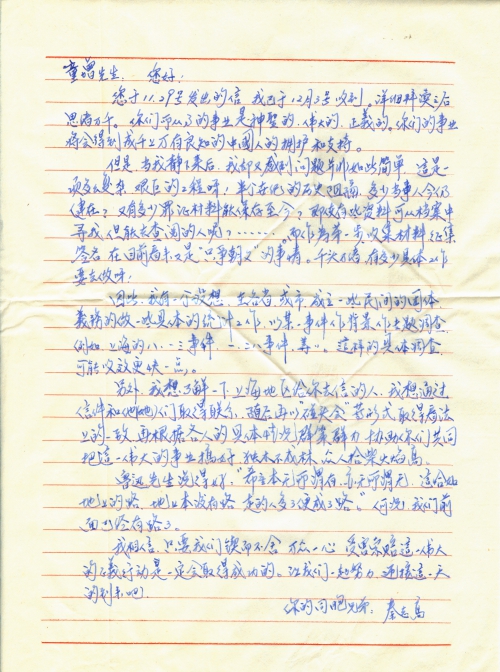 童增先生：您好！
您于11.29号发出的信，我已于12月3号收到。详细拜读之后
思绪万千。你们所从事的事业是神圣的、伟大的、正义的。你们的事业
将会得到成千上万有良知的中国人的拥护和支持。
但是，当我静下来后，我却又感到问题并非如此简单，这是一
项多么复杂、艰巨的工程呀！半个世纪的历史阻隔，多少当事人今仍
健在？又有多少罪证材料能保存至今？即使有些资料可从档案中
寻找，但能去查阅的人呢？……。而作为第一步收集材料、征集
签名，在目前看来又是“只争朝夕”的事情，千头万绪，有多少具体工作
要去做呀！
因此，我有一个设想，在各省、城市成立一些民间的团体，
义务的做一些具体的统计工作，以某一事件作背景作专题调查，
例如上海的八·一三事件、一·二八事件等。这样的具体调查，
可能收效更快一点。
另外，我想了解一下上海地区给你去信的人，我想通过
信件和他(她)们取得联系，随后再以碰头会等形式取得看法
上的一致，再根据各人的具体情况群策群力，协助你们共同
把这一伟大的事业搞好。独木不成林，众人拾柴火焰高。
鲁迅先生说得好：“希望本无所谓有，无所谓无，这恰如
地上的路，地上本没有路，走的人多了便成了路。”何况，我们前
面已经有路了。
我相信，只要我们锲而不舍，万众一心，受害索赔这一伟大
的正义行动是一定会取得成功的。让我们一起努力，迎接这一天
的到来吧！
你的同胞兄弟：秦志高